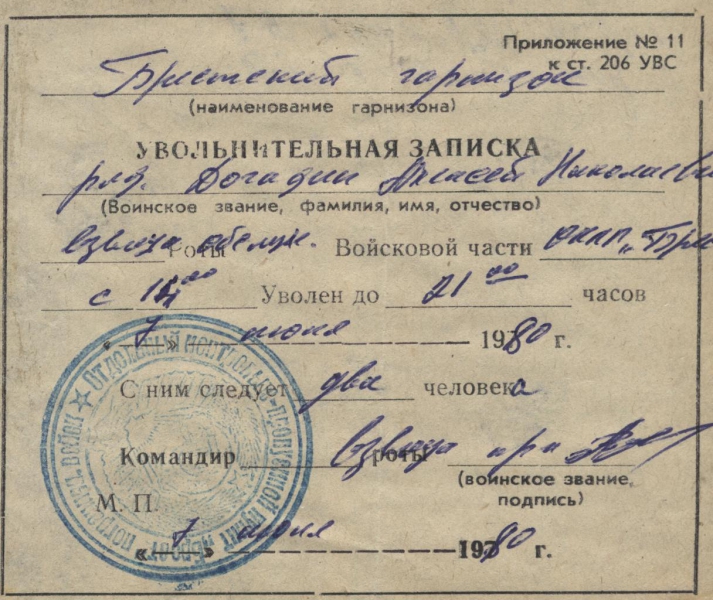 Приложение № 11
к ст. 206 УВС
Брестский гарнизон
(наименование гарнизона)
УВОЛЬНИТЕЛЬНАЯ ЗАПИСКА
ряд. Догадин Алексей Николаеви
(Воинское звание, фамилия, имя, отчество)
взвода обслуж. Роты Войсковой части ОКПП „Бре
с 14 00 Уволен до 21 00 часов
7 июня 1980 г.
С ним следует два человека
Командир взвода роты пр-к
(воинское звание,
подпись)
М. П.
«7» июня 1980 г.
ОТДЕЛЬНЫЙ КОНТРОЛЬНО-ПРОПУСКНОЙ ПУНКТ „БРЕСТ" ПОГРАНИЧ. ВОЙСК